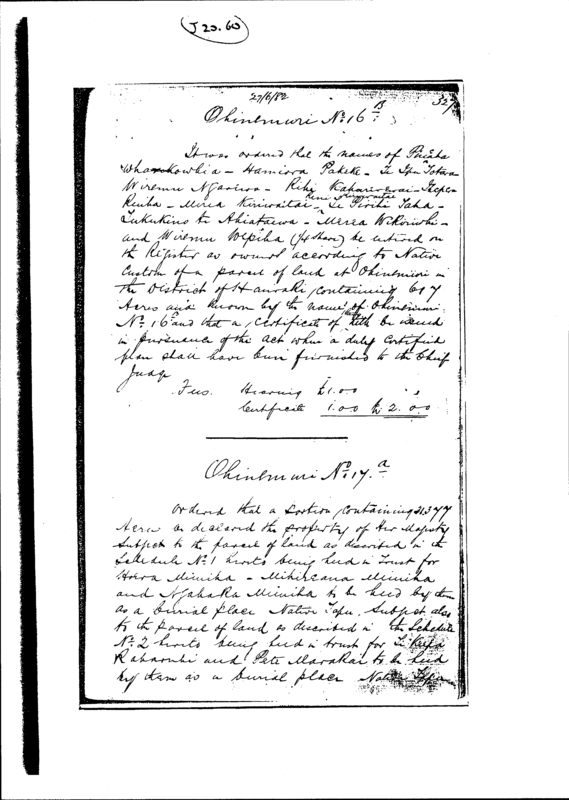 J 20.60
27/6/82
327
Ohinemuri No. 16 B
It was ordered that the names of
Whanakowhia – Hamiora Pakeke – Te Ipu Totara
Wiremu Ngariwa – Rihi
Renha – Merea Kiriwaitai – Te Teira Taha –
Tukukino te Ahiataewa – Merea Wikiriwhi –
and Wiremu Wepiha (¼ share) be entered on
the Register as owners according to Native
Custom of a parcel of land at Ohinemuri in
the District of Hauraki, containing 617
Acres and known by the name of Ohinemuri
No. 16 and that a certificate of title be issued
in pursuance of the Act when a duly certified
plan shall have been furnished to the Chief
Judge
Fees. Hearing £1.00
Certificate 1.00 £2.00
Ohinemuri No. 17 a
Ordered that a portion, containing 21377
Acres be declared the property of Her Majesty
Subject to the parcel of land as described in the
Schedule No. 1 hereto being held in trust for
Hoera Mimiha – Mihireana Mimiha
and Ngahaka Mimiha to be held by them
as a burial place Native Tapu. Subject also
to the parcel of land as described in the Schedule
No. 2 hereto being held in trust for Te Keepa
Raharuhi and Pate Marakai to be held
by them as a burial place Native Tapu